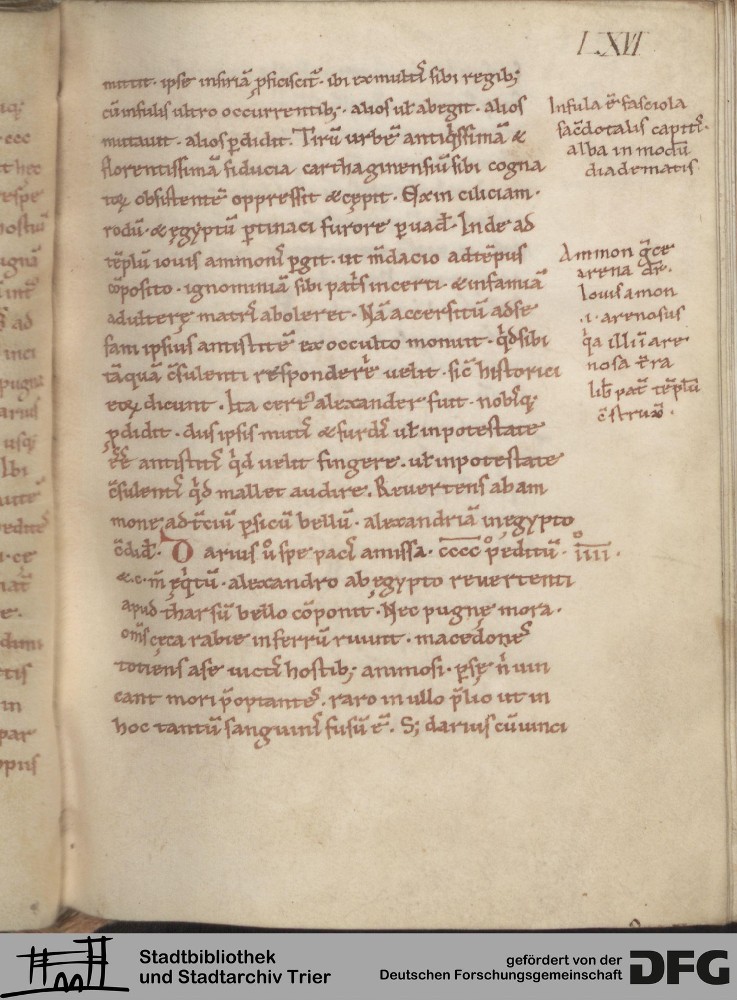 LXVI
mittit · ipse insiriā ꝓficiscit᷑ · ibi ex multis sibi regib;
cū infulis ultro occurrentib; · alios uł abegit · alios
mutauit · alios ꝑdidit. Tirū urbē antiq̇ssimā &
florentissimā fiducia carthaginensiū sibi cogna
toꝝ obsistentē oppressit & cępit. Exin ciliciam ·
rodū · & ęgyptū ꝑtinaci furore ꝑuad̄ · Inde ad
tēplū iouis ammonis ꝑgit · ut m̄dacio ad tēpus
cōposito · ignominiā sibi pat̄s incerti · & infamiā
adulterę matris aboleret · Nā accersitū ad se
fani ipsius antistitē ex occulto monuit · q̇d sibi
tāquā c̄sulenti respondere uelit · sic̄ historici
eoꝝ dicunt. Ita cert᷒ alexander fuit · nobisq;
ꝓdidit · diis ipsis mutis & surdis uł in potestate
ēē antistitis q̇d uelit fingere · uł in potestate
c̄sulentis q̇d mallet audire. Reuertens ab am
mone · ad t̄ciū ꝑsicū bellū · alexandriā in egypto
c̄did̄. Darius u̇ spe pacis amissa · cccc ꝑeditū · iiii ·
&·c· m̄ eq̇tū · alexandro ab egypto reuertenti
apud tharsū bello cōponit · Nec pugnę mora ·
om̄s ceca rabie in ferrū ruunt · macedones
totiens a se uictis hostib; animosi · ꝑsę n̄ uin
cant mori p̄optantes · raro in ullo p̄lio ut in
hoc tantū sanguinis fusū ē. S; darius cū uinci
Infula ē fasciola
sac̄dotalis capitis ·
alba in modū
diadematis
Ammon ḡce
arena dr̄.
Iouis amon
.i. arenosus
q̇a illi ī are
nosa t̄ra
lib̄ pat̄ tēplū
Stadtbibliothek
und Stadtarchiv Trier
gefördert von der
Deutschen Forschungsgemeinschaft
DFG